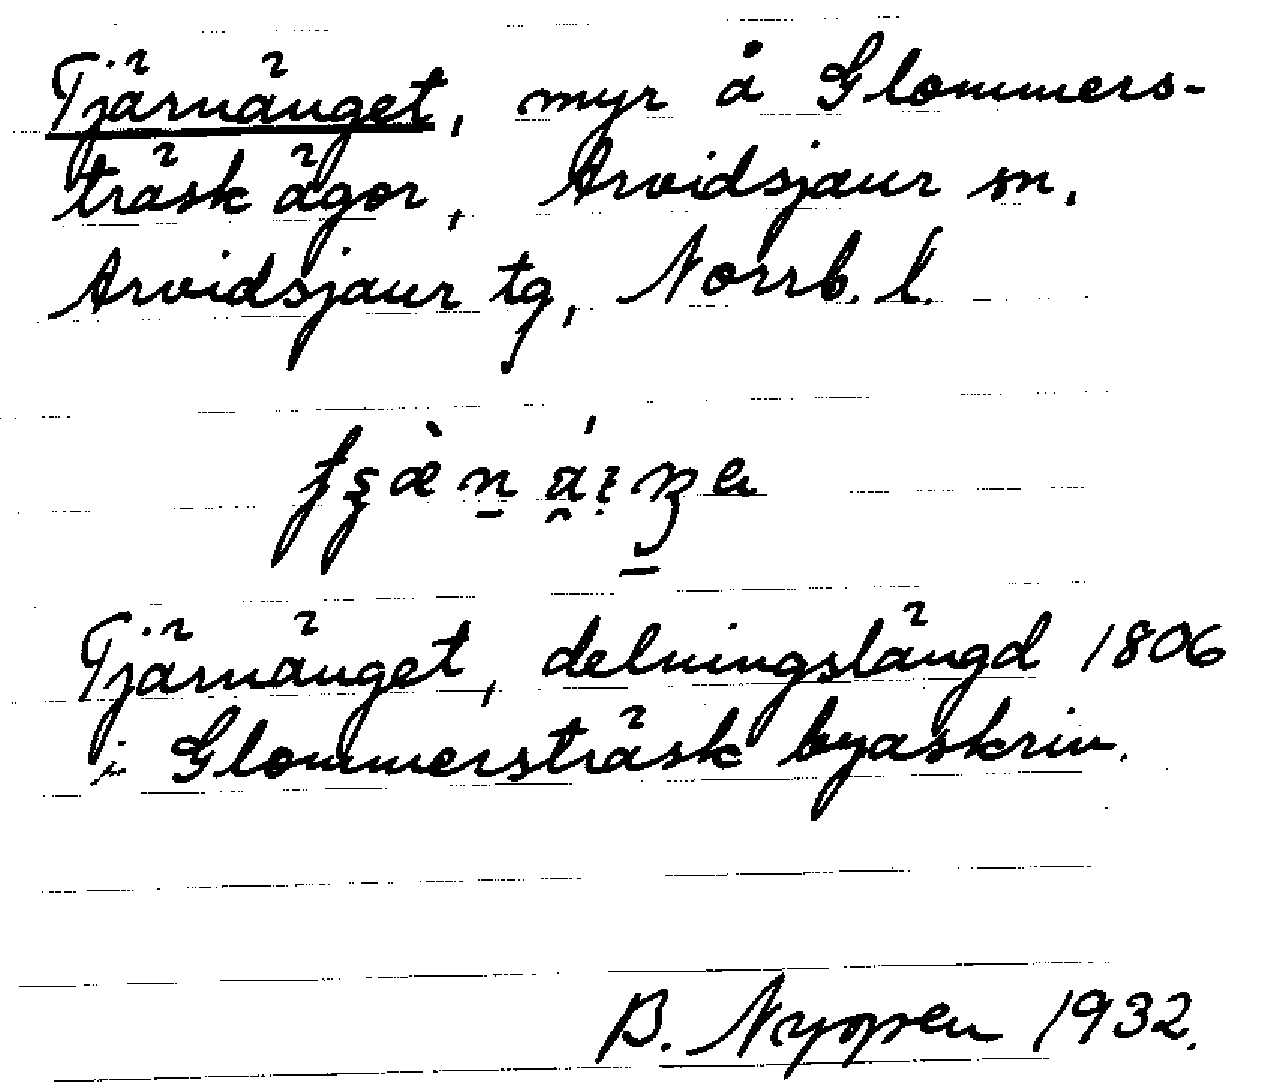 Tjärnänget, myr å Glommers-
träsk ägor, Arvidsjaur sn,
Arvidsjaur tg, Norrb. l.
Tjärnänget, delningslängd 1806
i Glommersträsk byaskrin.
B. Nyppen 1932.